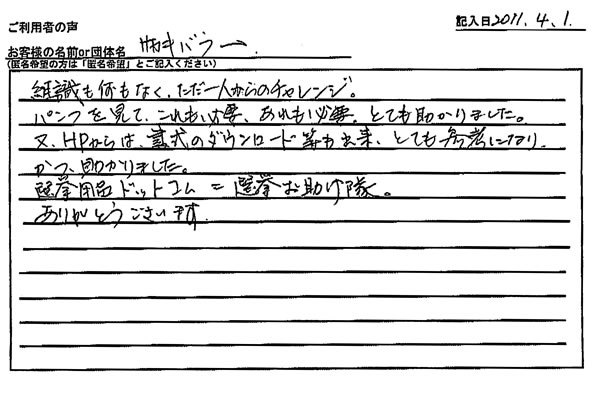 ご利用者の声
記入日2011.4.1.
お客様の名前or団体名
(匿名希望の方は「匿名希望」とご記入ください)
組識も何もなく、ただ一人からのチャレンジ。
パンフを見て、これも必要、あれも必要、とても助かりました。
又、HPからは、書式のダウンロード等も出来、とても参考になり、
かつ、助かりました。
選挙用品ドットコム=選挙お助け隊。
ありがとうございます.